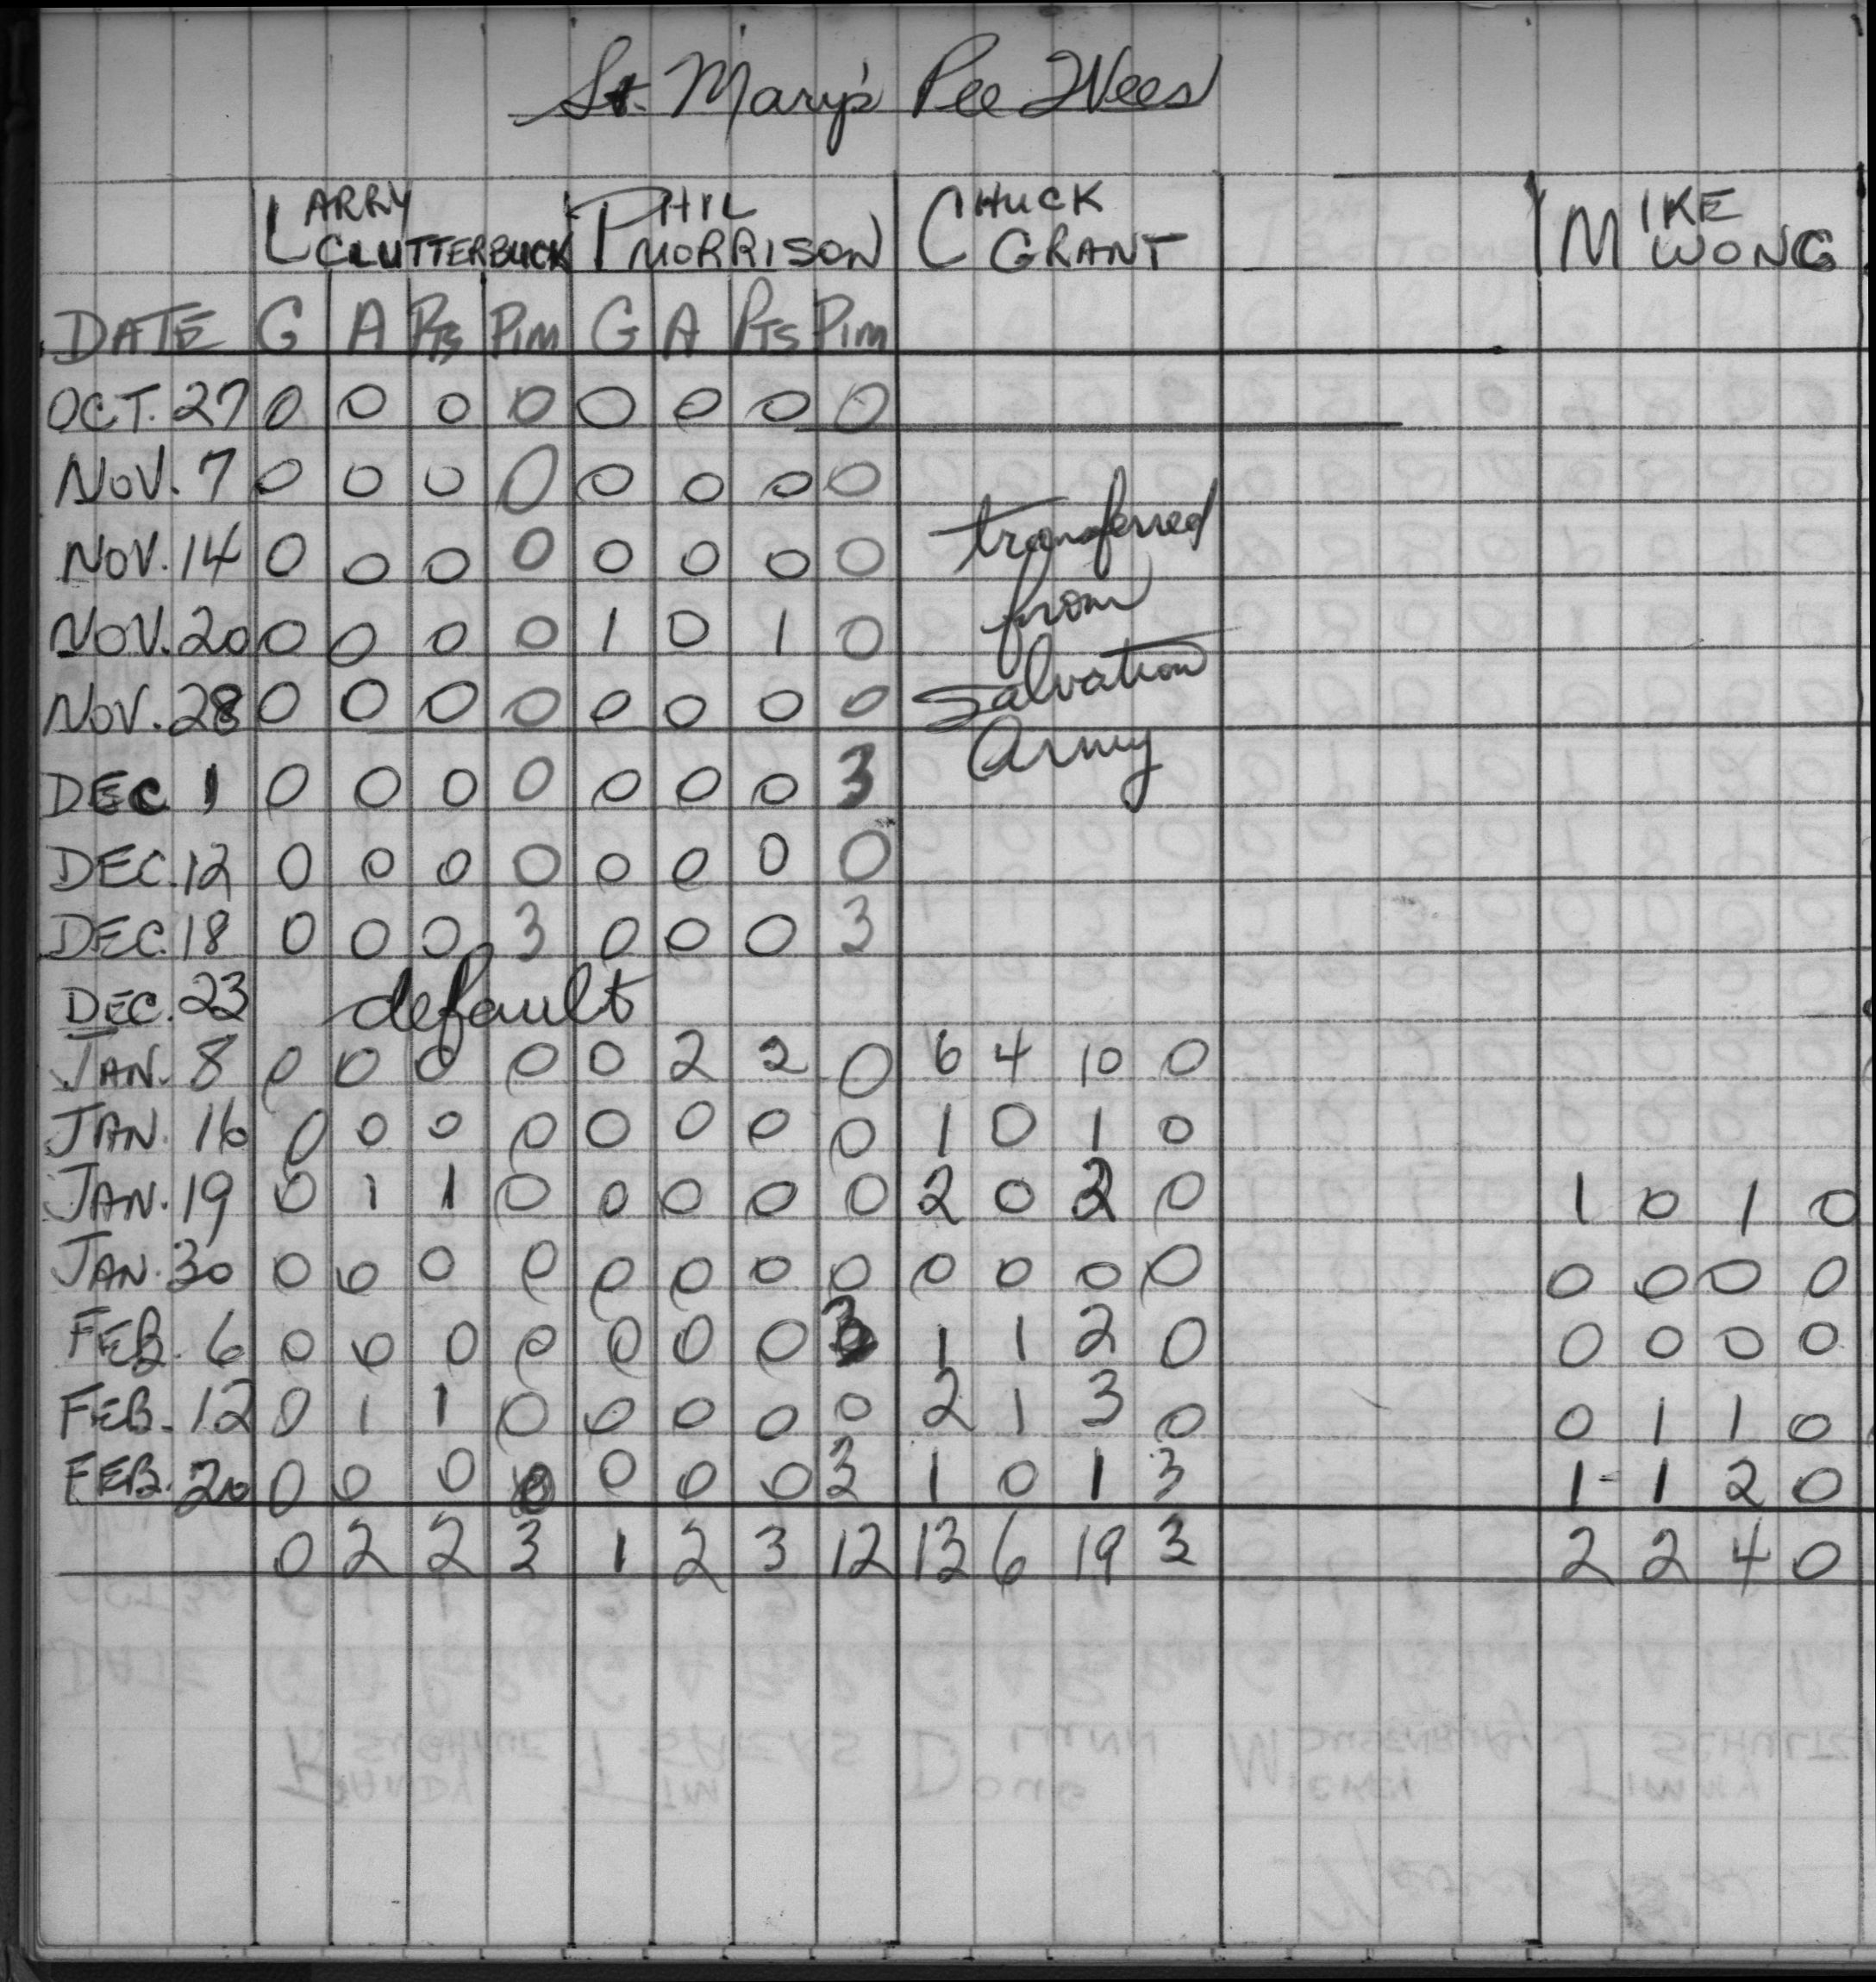 St. Mary's Pee Wees
LARRY CLUTTERBUCK PHIL MORRISON CHUCK GRANT MIKE WONG
DATE G A Pts Pim G A Pts Pim
OCT. 27 0 0 0 0 0 0 0 0
NOV. 7 0 0 0 0 0 0 0 0
NOV. 14 0 0 0 0 0 0 0 0
transferred
NOV. 20 0 0 0 0 1 0 1 0
from
NOV. 28 0 0 0 0 0 0 0 0
Salvation
DEC 1 0 0 0 0 0 0 0 3
Army
DEC. 12 0 0 0 0 0 0 0 0
DEC. 18 0 0 0 3 0 0 0 3
DEC. 23 default
JAN. 8 0 0 0 0 0 2 2 0 6 4 10 0
JAN. 16 0 0 0 0 0 0 0 0 1 0 1 0
JAN. 19 0 1 1 0 0 0 0 0 2 0 2 0 1 0 1 0
JAN. 30 0 0 0 0 0 0 0 0 0 0 0 0 0 0 0 0
FEB. 6 0 0 0 0 0 0 0 3 1 1 2 0 0 0 0 0
FEB. 12 0 1 1 0 0 0 0 0 2 1 3 0 0 1 1 0
FEB. 20 0 0 0 0 0 0 0 3 1 0 1 3 1 1 2 0
0 2 2 3 1 2 3 12 13 6 19 3 2 2 4 0